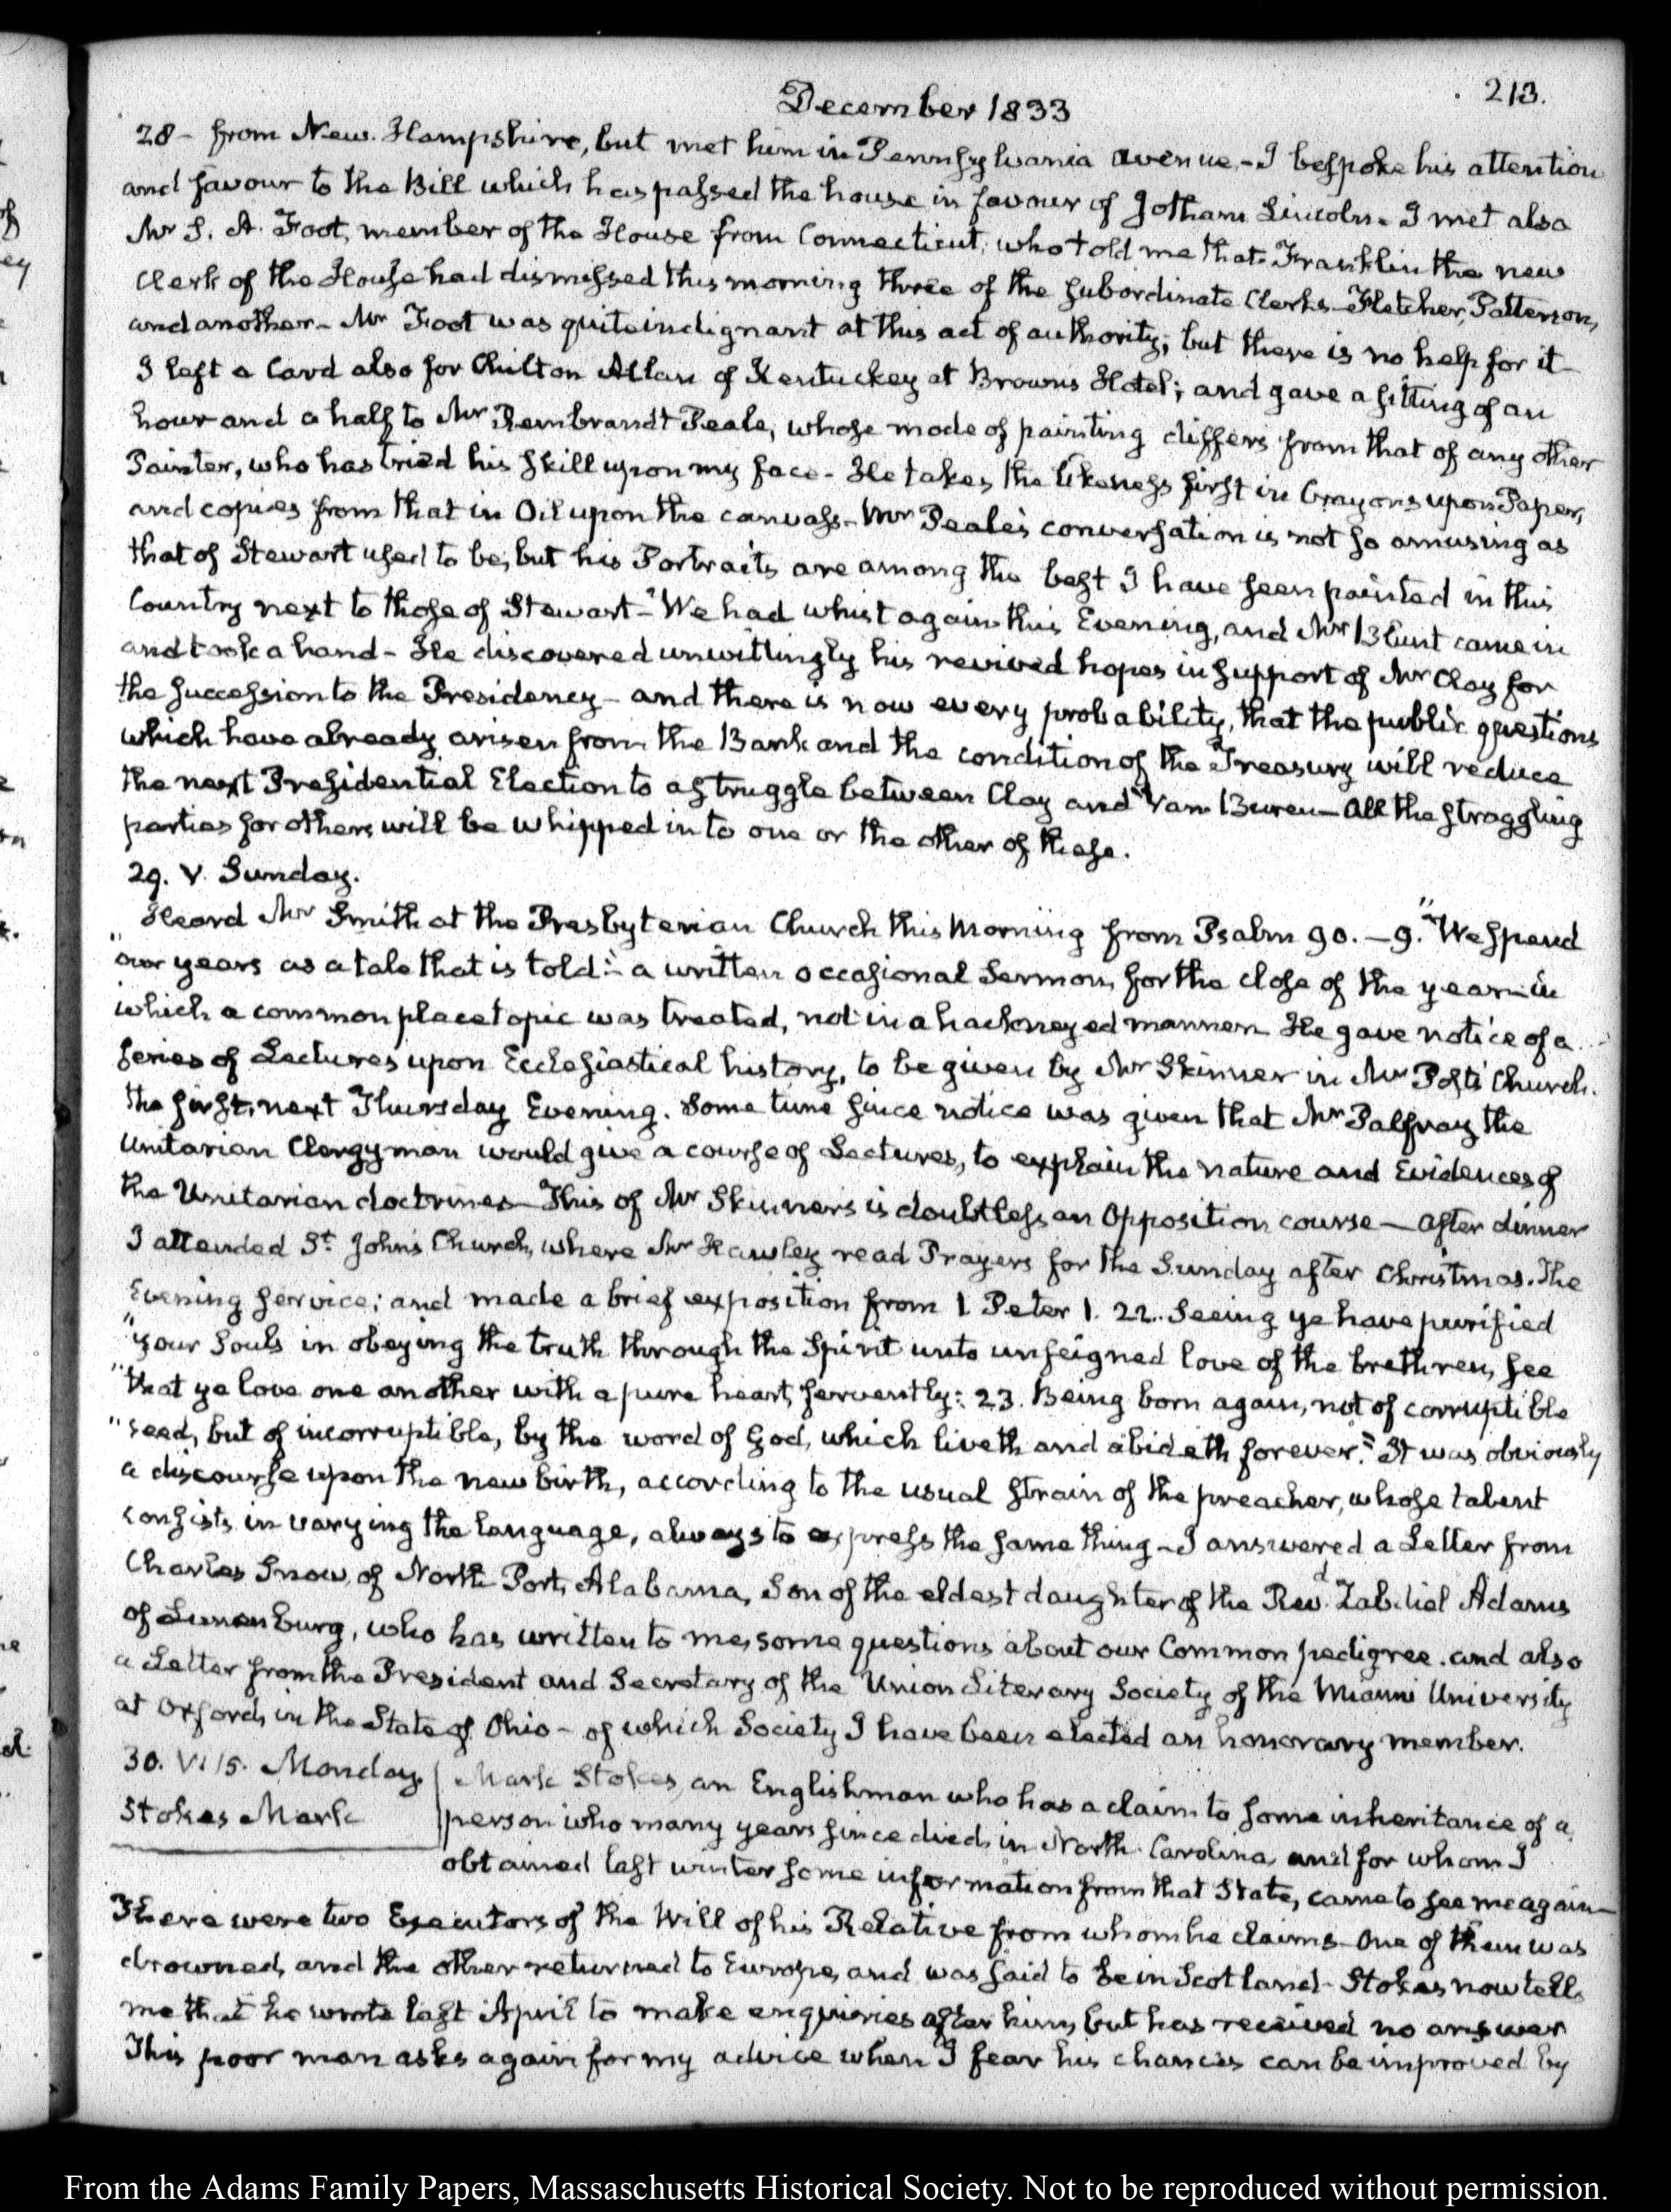 213.
December 1833
28- from New-Hampshire, but met him in Pennsylvania avenue.- I bespoke his attention
and favour to the Bill which has passed the house in favour of Jotham Lincoln. I met also
Mr S. A. Foot, member of the House from Connecticut, who told me that Franklin the new
Clerk of the House had dismissed this morning three of the subordinate Clerks- Fletcher, Patterson,
and another- Mr Foot was quite indignant at this act of authority; but there is no help for it-
I left a Card also for Chilton Allan of Kentuckey at Browns Hotel; and gave a sitting of an
hour and a half to Mr Rembrandt Peale, whose mode of painting differs from that of any other
Painter, who has tried his skill upon my face- He takes the likeness first in Crayons upon Paper,
and copies from that in Oil upon the canvass- Mr Peale's conversation is not so amusing as
that of Stewart used to be, but his Portraits are among the best I have seen painted in this
Country next to those of Stewart- We had whist again this Evening, and Mr Blunt came in
and took a hand- He discovered unwittingly his revived hopes in support of Mr Clay for
the succession to the Presidency- and there is now every probability, that the public questions
which have already arisen from the Bank and the condition of the Treasury will reduce
the next Presidential Election to a struggle between Clay and Van Buren- All the straggling
parties for others will be whipped in to one or the other of these.
29. V. Sunday.
Heard Mr Smith at the Presbyterian Church this Morning from Psalm 90.-9. "We spend
"our years as a tale that is told"- a written occasional Sermon, for the close of the year- in
which a common place topic was treated, not in a hackneyed manner. He gave notice of a
series of Lectures upon Ecclesiastical history, to be given by Mr Skinner in Mr Post's Church.
the first, next Thursday Evening. Some time since notice was given that Mr Palfray the
Unitarian Clergyman would give a course of Lectures, to explain the nature and Evidences of
the Unitarian doctrines- This of Mr Skinner's is doubtless an Opposition course- After dinner
I attended St. John's Church, where Mr Hawley read Prayers for the Sunday after Christmas. The
Evening service; and made a brief exposition from 1 Peter 1. 22. Seeing ye have purified
"your Souls in obeying the truth through the Spirit unto unfeigned love of the brethren, see
"that ye love one another with a pure heart, fervently: 23. Being born again, not of corruptible
"seed, but of incorruptible, by the word of God, which liveth and abideth forever." It was obviously
a discourse upon the new birth, according to the usual strain of the preacher, whose talent
consists in varying the language, always to express the same thing- I answered a Letter from
Charles Snow, of North Port, Alabama, Son of the eldest daughter of the Revd. Zabdiel Adams
of Lunenburg, who has written to me, some questions about our Common pedigree. and also
a Letter from the President and Secretary of the Union Literary Society of the Miami University
at Oxford, in the State of Ohio- of which Society I have been elected an honorary member.
30. V:15. Monday. Mark Stokes, an Englishman who has a claim to some inheritance of a
Stokes Mark person who many years since died, in North Carolina, and for whom I
obtained last winter some information from that State, came to see me again-
There were two Executors of the Will of his Relative from whom he claims- One of them was
drowned, and the other returned to Europe, and was said to be in Scotland- Stokes now tells
me that he wrote last April to make enquiries after him, but has received no answer
This poor man asks again for my advice when I fear his chances can be improved by
From the Adams Family Papers, Massachusetts Historical Society. Not to be reproduced without permission.